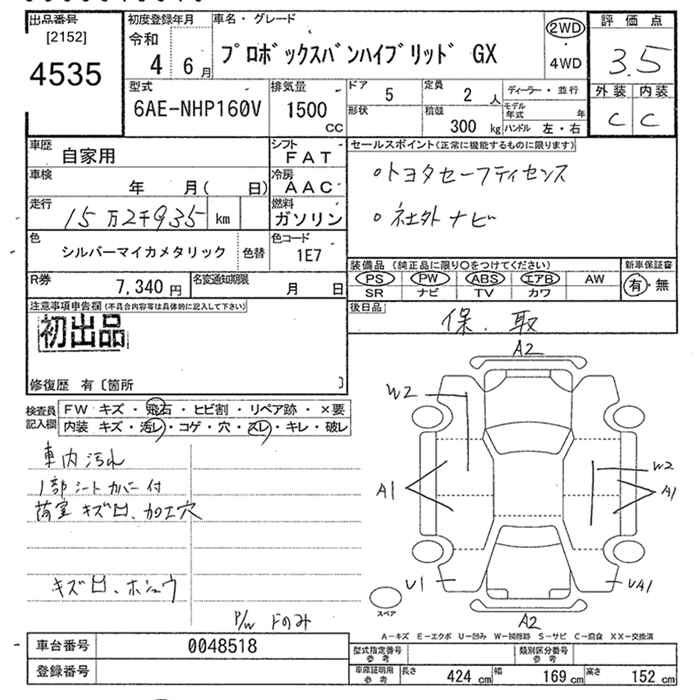 出品番号
[2152]
4535
初度登録年月
令和
4 年 6 月
車名・グレード
プロボックスバンハイブリッド GX
2WD
・
4WD
評価点
3.5
外装 内装
C C
型式
6AE-NHP160V
排気量
1500
cc
ドア
5
定員
2 人
形状
積載
300 kg
ディーラー・並行
モデル年式 年
ハンドル 左・右
車歴
自家用
シフト
FAT
車検
年 月( 日)
冷房
AAC
走行
15万2千935 km
燃料
ガソリン
色
シルバーマイカメタリック
色替
色コード
1E7
R券
7,340 円
名変通知期限
月 日
セールスポイント(正常に機能するものに限ります)
○トヨタセーフティセンス
○社外ナビ
装備品(純正品に限り○をつけてください)
PS PW ABS エアB AW
SR ナビ TV カワ
新車保証書
有・無
後日品
保.取
注意事項申告欄(不具合内容等は具体的に記入して下さい)
初出品
修復歴 有〔箇所 〕
検査員記入欄
FW キズ・飛石・ヒビ割・リペア跡・×要
内装 キズ・汚レ・コゲ・穴・スレ・キレ・破レ
車内汚れ
1部シートカバー付
荷室キズ凹、加工穴
キズ凹、ホシュウ
P/W Fのみ
A2
W2
A1
W2
A1
U1
UA1
スペア
A2
A－キズ E－エクボ U－凹み W－補修跡 S－サビ C－腐食 XX－交換済
車台番号
0048518
登録番号
型式指定番号
参考
類別区分番号
参考
車庫証明用
参考
長さ 424 cm
幅 169 cm
高さ 152 cm